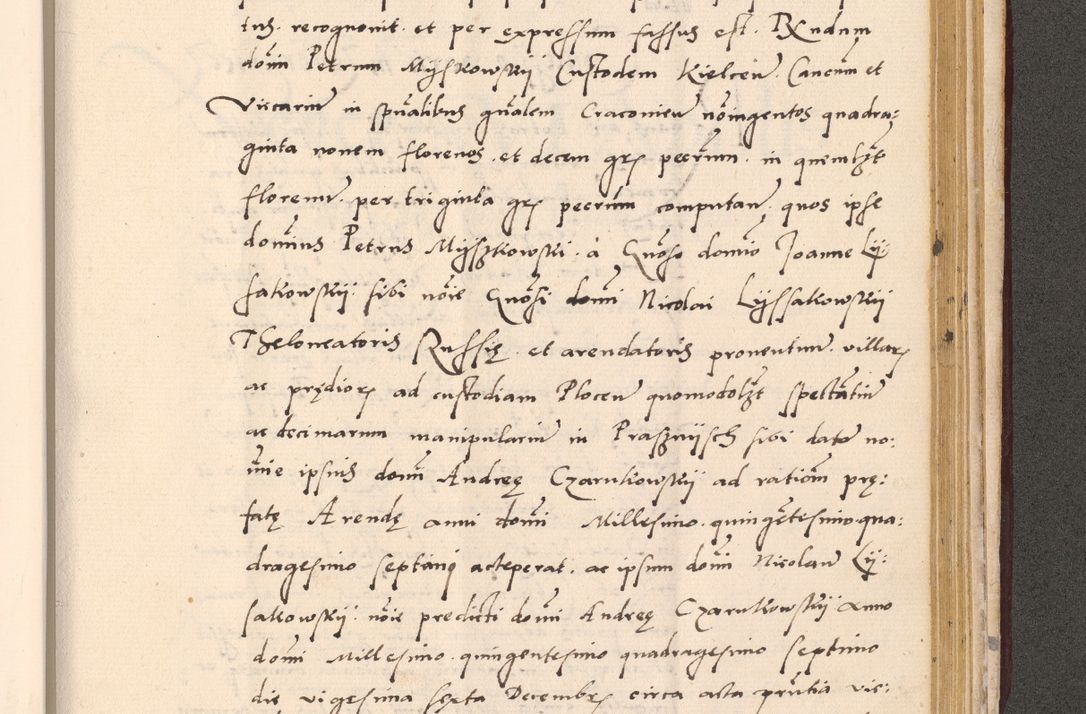 tus. recognovit. et per expressum fassus est. Rndum
domi Petrum Mÿskowskÿ Custodem Kielcen. Canonm et
Viccarium in spualibus gnalem Cracovien noingentos quadra:
ginta novem florenos. et decem grs pecum. in quemlzt
florenum. per triginta grs pecum computan. quos ipse
dominus Petrus Mÿszkowski. a Gnoso domino Joanne Lÿ:
sakowskÿ. sibi noie Gnosi domi Nicolai Lÿssakowskÿ
Theloneatoris Russię. et arendatoris proventum. villars
ac prędiors ad custodiam Plocen quomodolzt spectatium
ac decimarum manipularium in Praszniisch sibi dator no:
mie ipsius domi Andreę Czarnkowskÿ ad rationem prę:
fatę Arendę anni domi Millesimo. quingetesimo. qua:
dragesimo septimi acceperat. ac ipsum domi Nicolaum Lÿ:
sakowskÿ. noie predicti domi Andreę Czarnkowskÿ. Anno
domi Millesimo. quingentesimo quadragesimo septimo
die vigesima sexta Decembrs circa acta prntia vic: